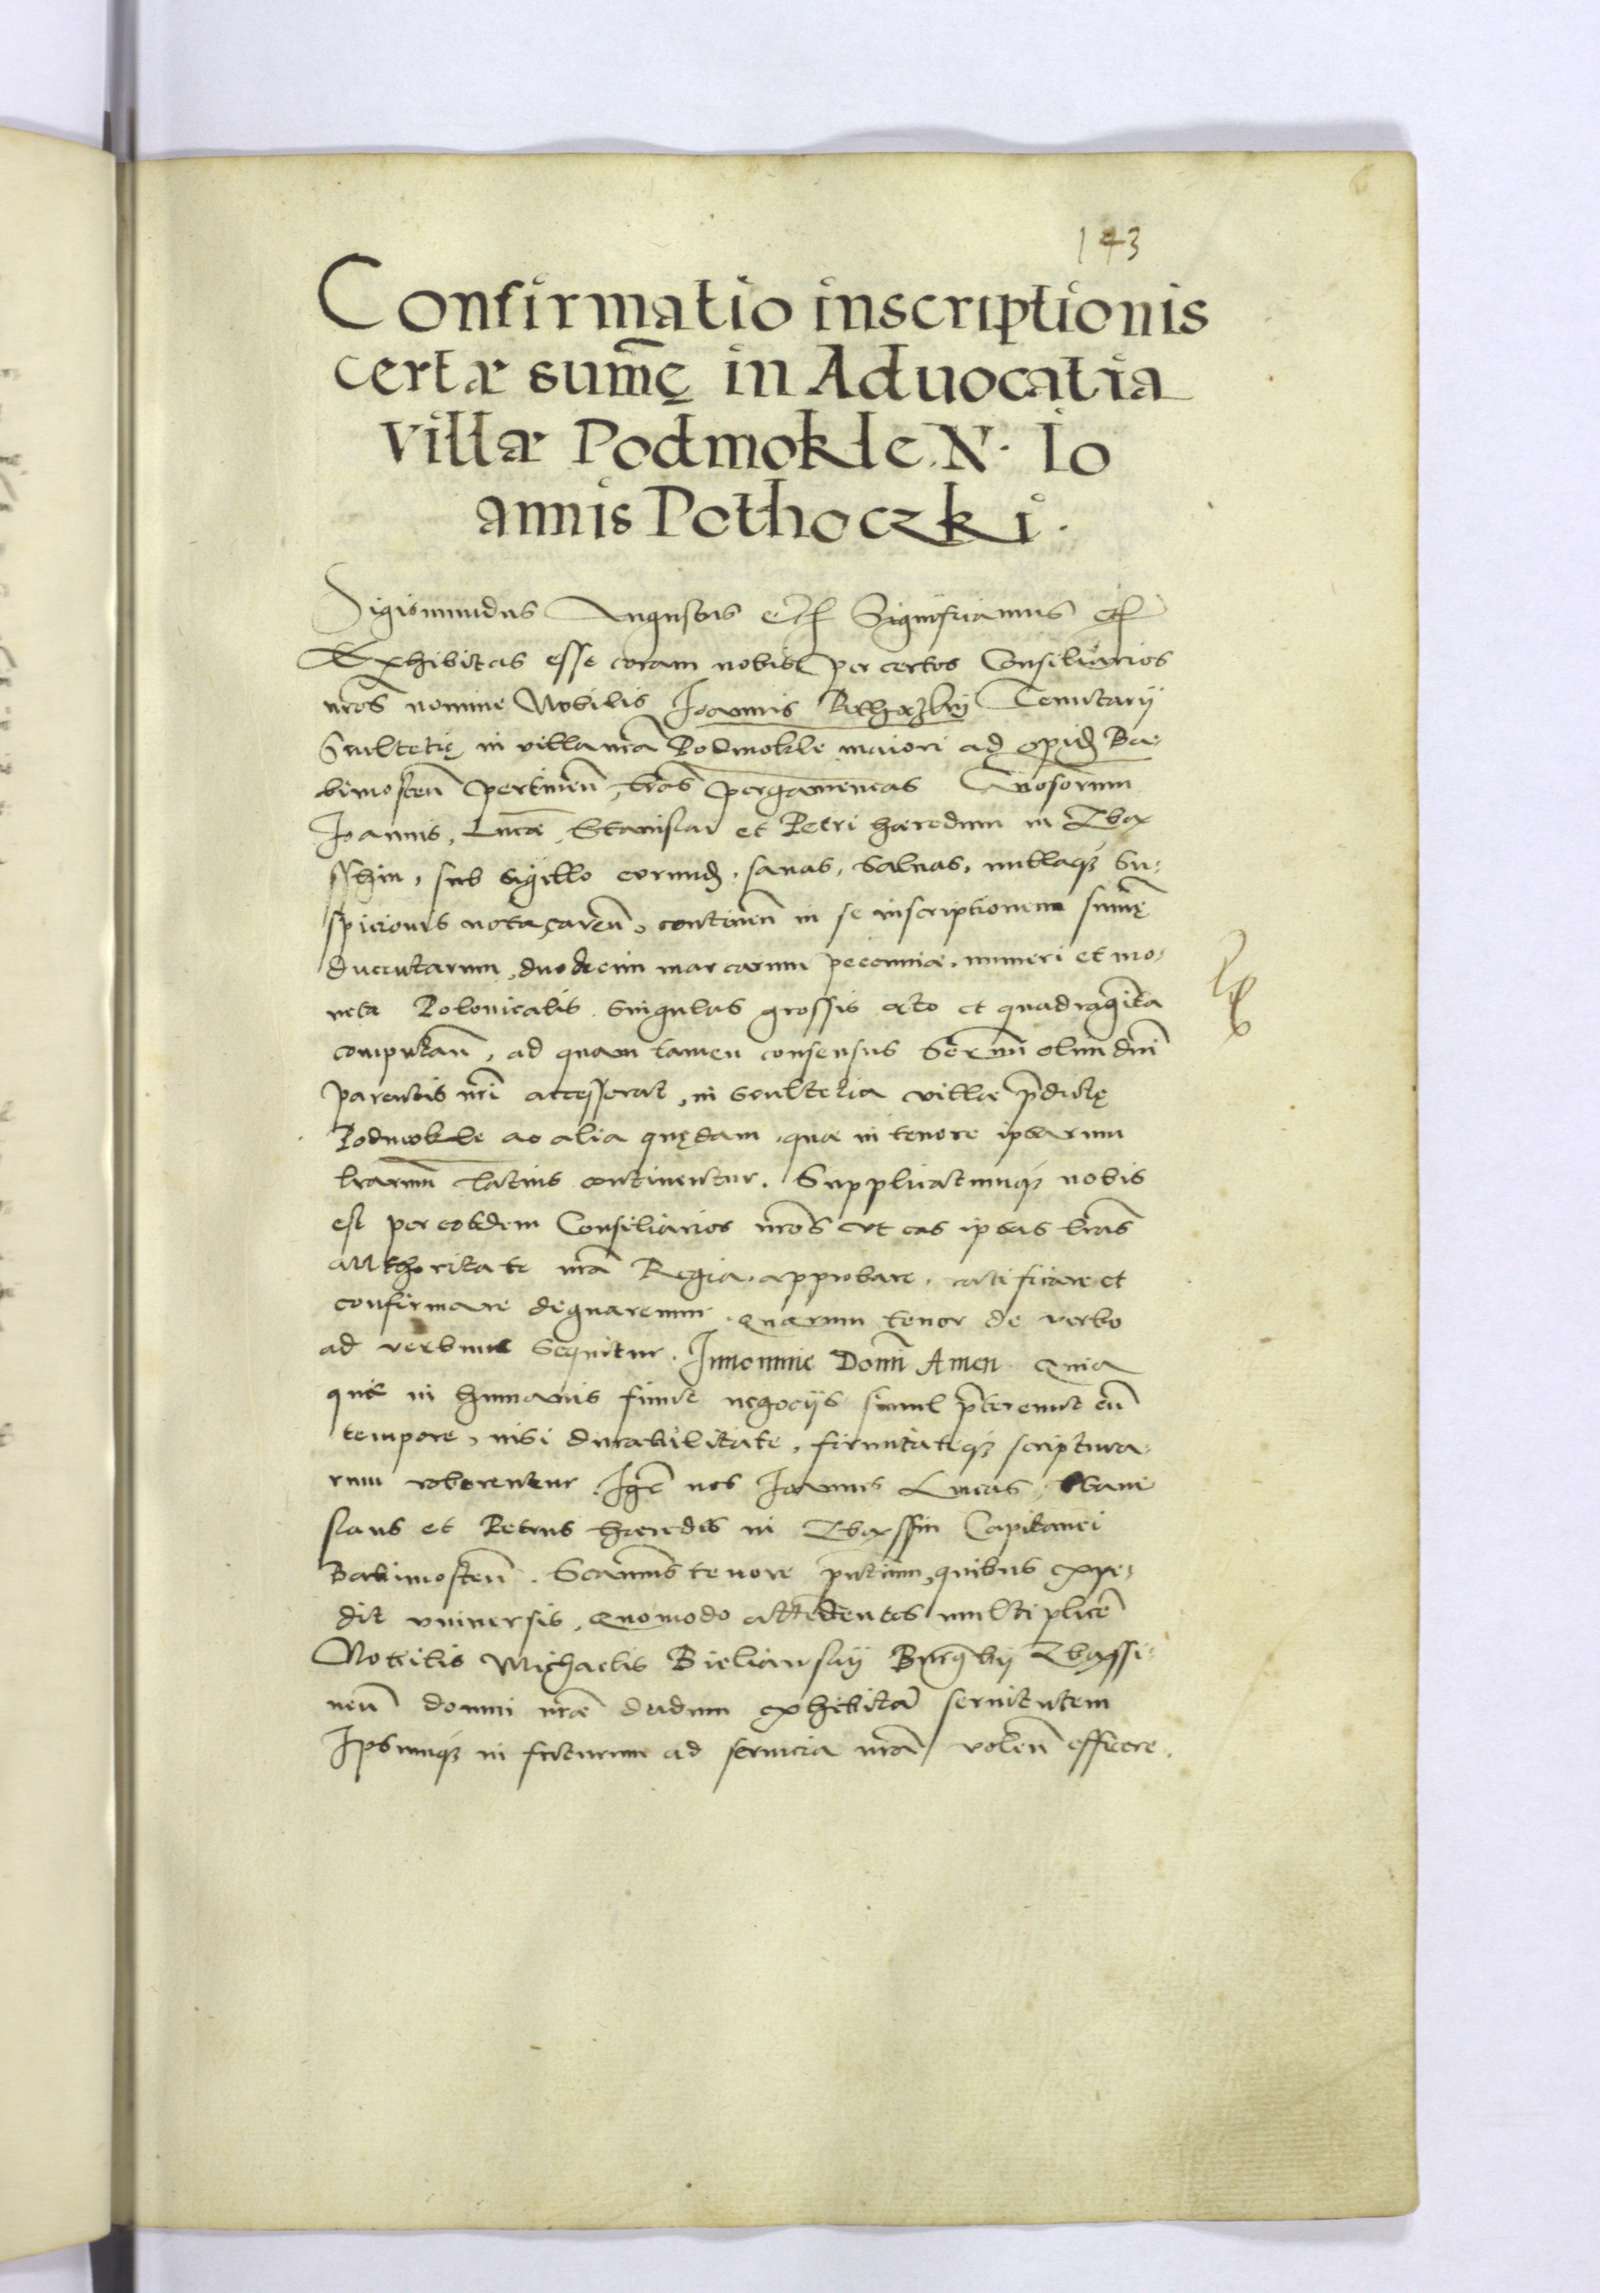 143
Confirmatio inscriptionis
certæ sum̃ę in Aduocatia
villæ Podmokle N. Io
annis Pothoczki.
Sigismundus Augustus etc̃ Significamus etc̃
Exhibitas esse coram nobis per certos Consiliarios
nr̃os nomine Nobilis Joannis Pothoczkij Tenutarij
Scultetię in villa nr̃a Podmokle maiori ad opid̃ Ba-
bimosteñ pertineñ, lr̃as pergameneas Gñosorum
Joannis, Lucæ, Stanislai et Petri hæredum in Zbax
sshin, sub sigillo eorund̃, sanas, saluas, nullaqz su-
spicionis nota careñ, contineñ in se inscriptionem sum̃ę
ducentarum, duodecim marcarum pecuniæ, numeri et mo-
netæ Polonicalis, singulas grossis octo et quadraginta
computañ, ad quam tamen consensus Sermi olim dni
parentis nr̃i accesserat, in scultetia villæ p̃dictę
Podmokle ac alia quędam, quæ in tenore ipsarum
lr̃arum latius continentur. Supplicatumqz nobis
est per eosdem Consiliarios nr̃os vt eas ipsas lr̃as
authoritate nr̃a Regia, approbare, ratificare et
confirmare dignaremur. Quarum tenor de verbo
ad verbum sequitur. In nomine Domi Amen. Quia
quæ in humanis fiunt negocijs simul p̃tereunt cũ
tempore, nisi durabilitate, firmitateqz scriptura-
rum roborentur. Igr̃ nos Joannis Lucas, Stani
slaus et Petrus hæredes in Zbaxssin Capitanei
Babimosteñ. Scimus tenore pñtium, quibus expe-
dit vniuersis, Quomodo attẽdentes multiplicẽ
Nobilis Michaelis Bieliansky Burgrabij Zbaxssi-
neñ domui nr̃æ dudum exhibitã seruitutem
Ipsumqz in futurum ad seruicia nr̃a voleñ efficere